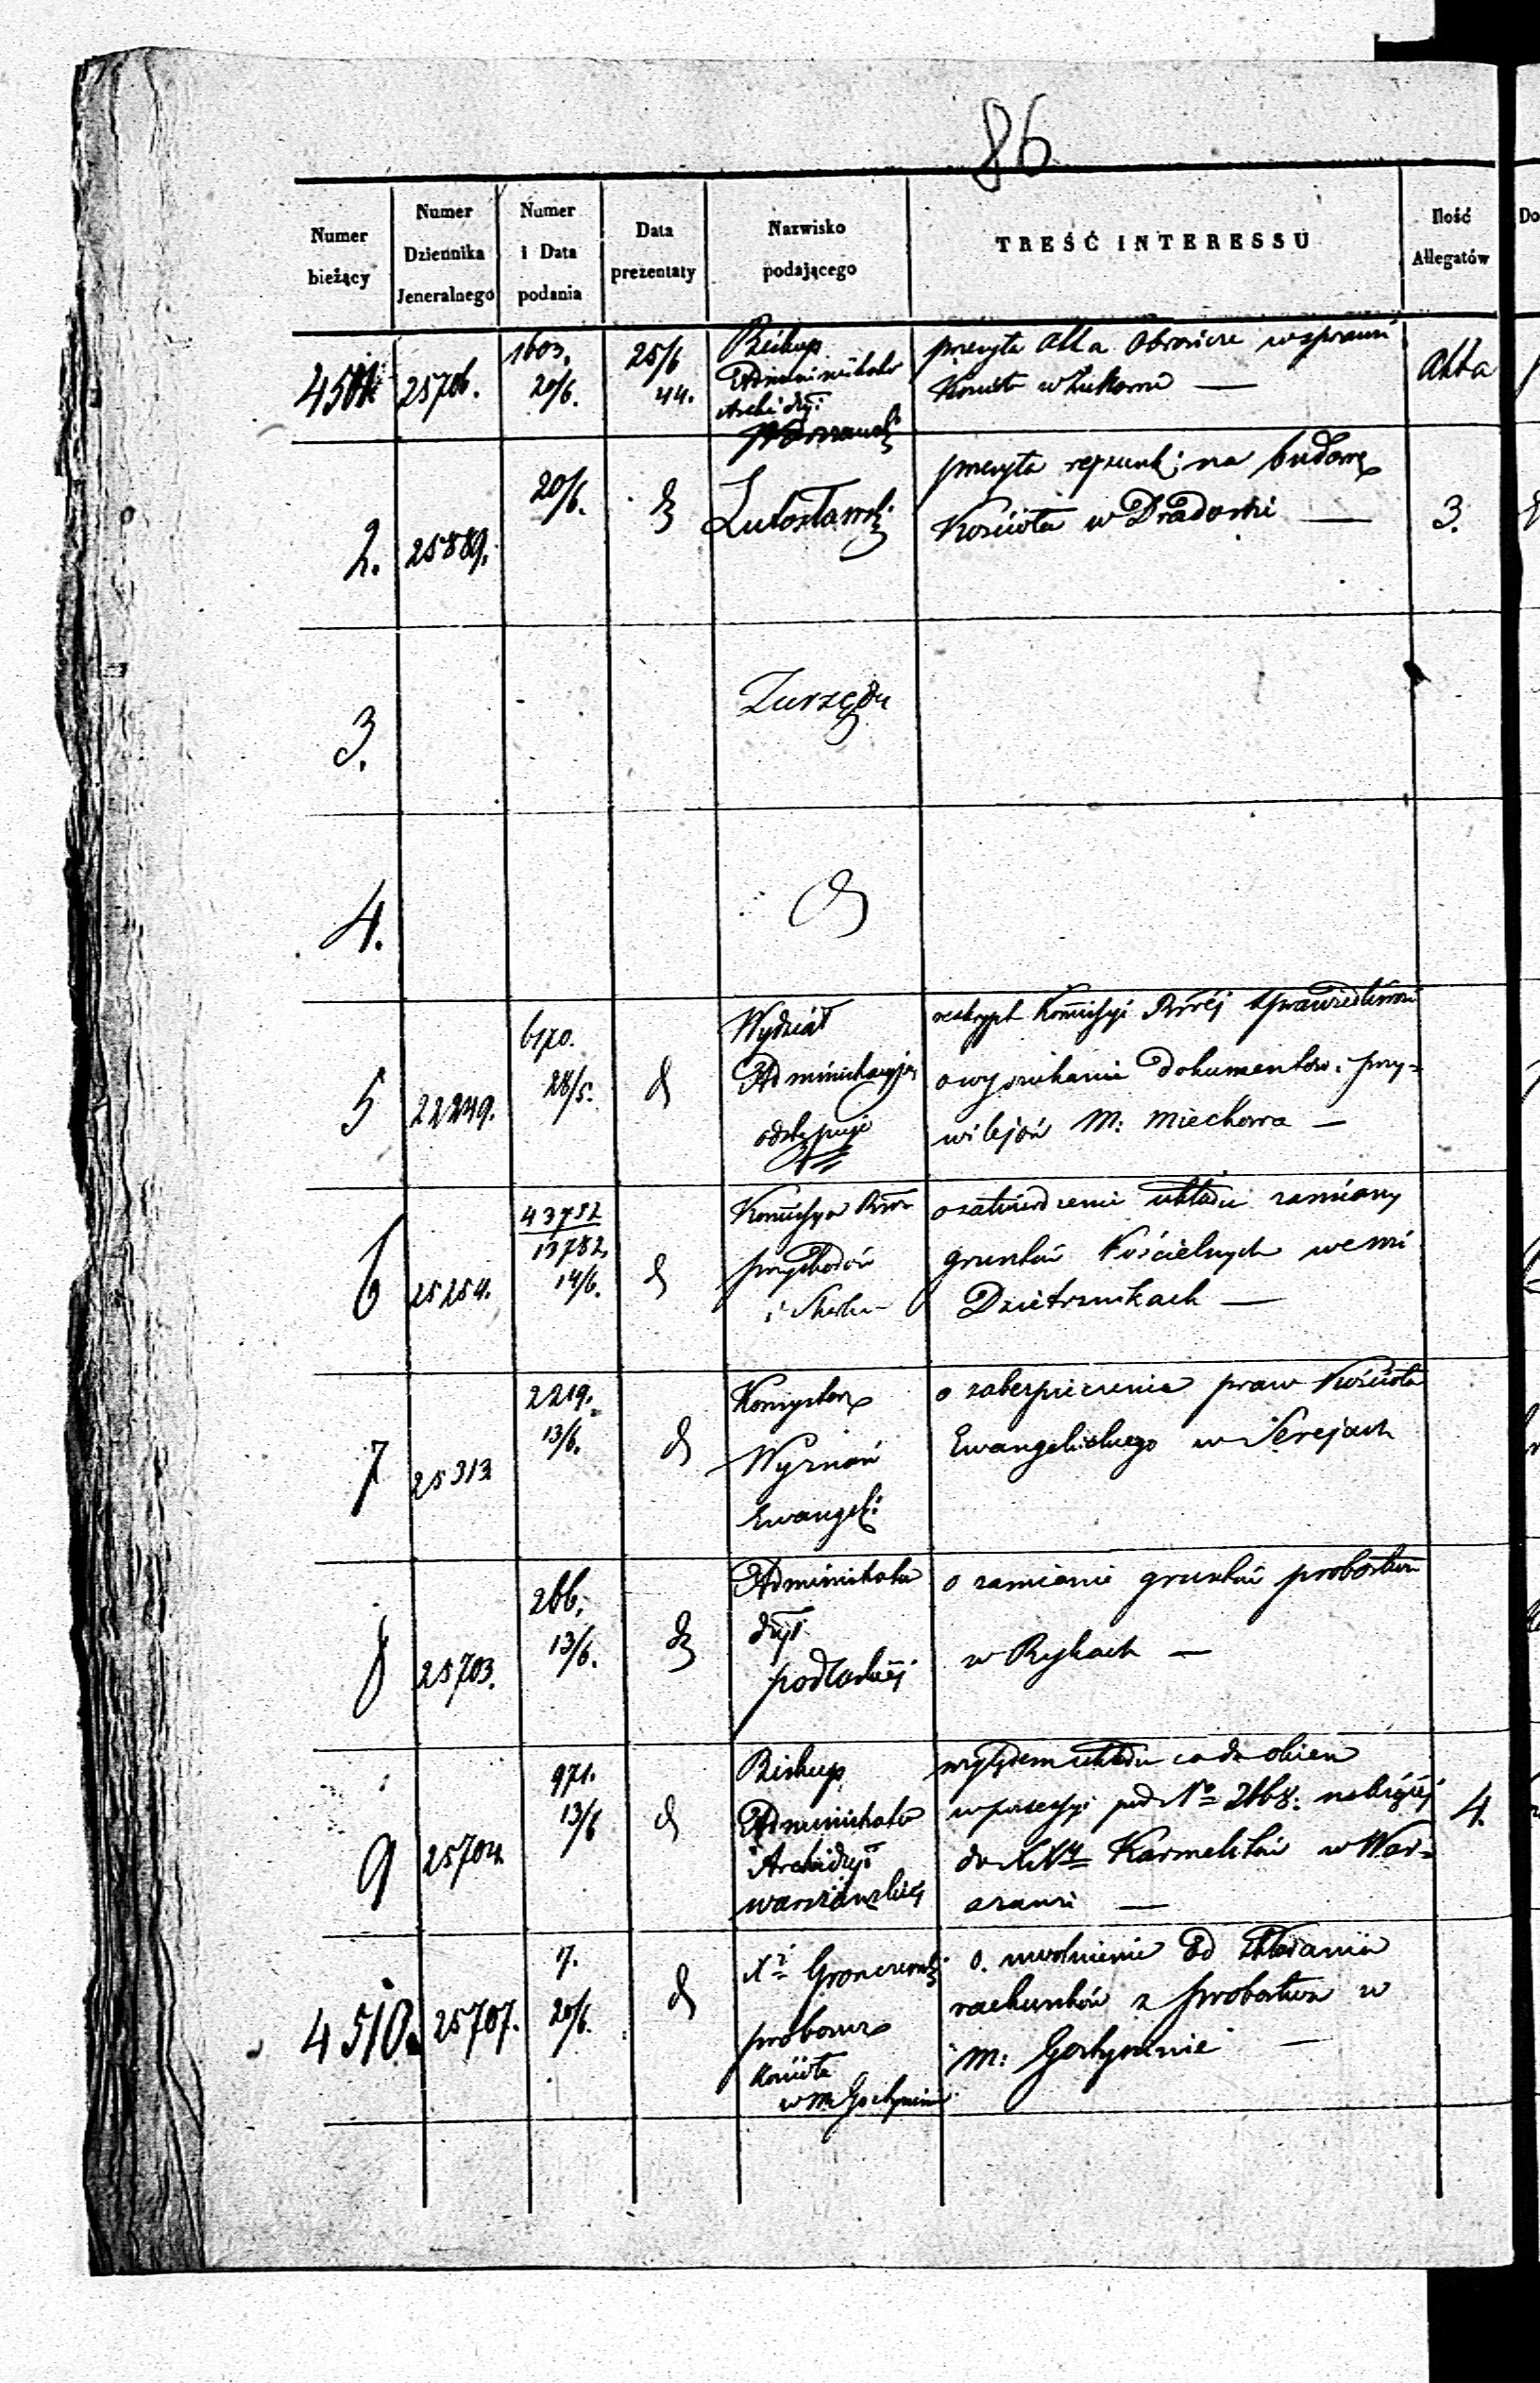 86
Numer bieżący
Numer Dziennika Jeneralnego
Numer i Data podania
Data prezentaty
Nazwisko podającego
TREŚĆ INTERESSU
Ilość Allegatów
4501 25706. 1603. 20/6. 25/6 44.
Biskup
Administrator
Archi dyi
Warszawski
przesyła akta w sprawie
Kościoła w Żukowie —
akta
2. 25889. 20/6.
Lutosławski
przesyła na budowę
Kościoła w —
3.
3.
Z urzędu
4.
5 22249. 6170. 28/5.
Wydział
Administracyjny
odstępuje
reskrypt Kommissyi Rzwéj Sprawiedliwości
o wyszukanie Dokumentów i przy-
wilejów M: Miechowa —
6 25254. 43782 13782. 14/6.
Kommissya Rzwa
przychodów
i Skarbu
o zatwierdzenie układu zamiany
gruntów Kościelnych we wsi
Dzietrznikach —
7 25313 2219. 13/6.
Konsystorz
Wyznań
Ewangeli
o zabezpieczenie praw Kościoła
Ewangelickiego w Serejach
8 25703. 266. 13/6.
Administrator
dyi
podlaskiéj
o zamianie gruntów probostwa
w Rykach —
9 25704 971. 13/6
Biskup
Administrator
Archidyi
warszawskiéj
względem układu co do okien
w possessyi pod No 2668. należącéj
do Karmelitów w War-
szawie —
4.
4510. 25707. 17. 20/6.
X
proboszcz
Kościoła
w m Gostyninie
o uwolnienie od składania
rachunków z probostwa w
m: Gostyninie —